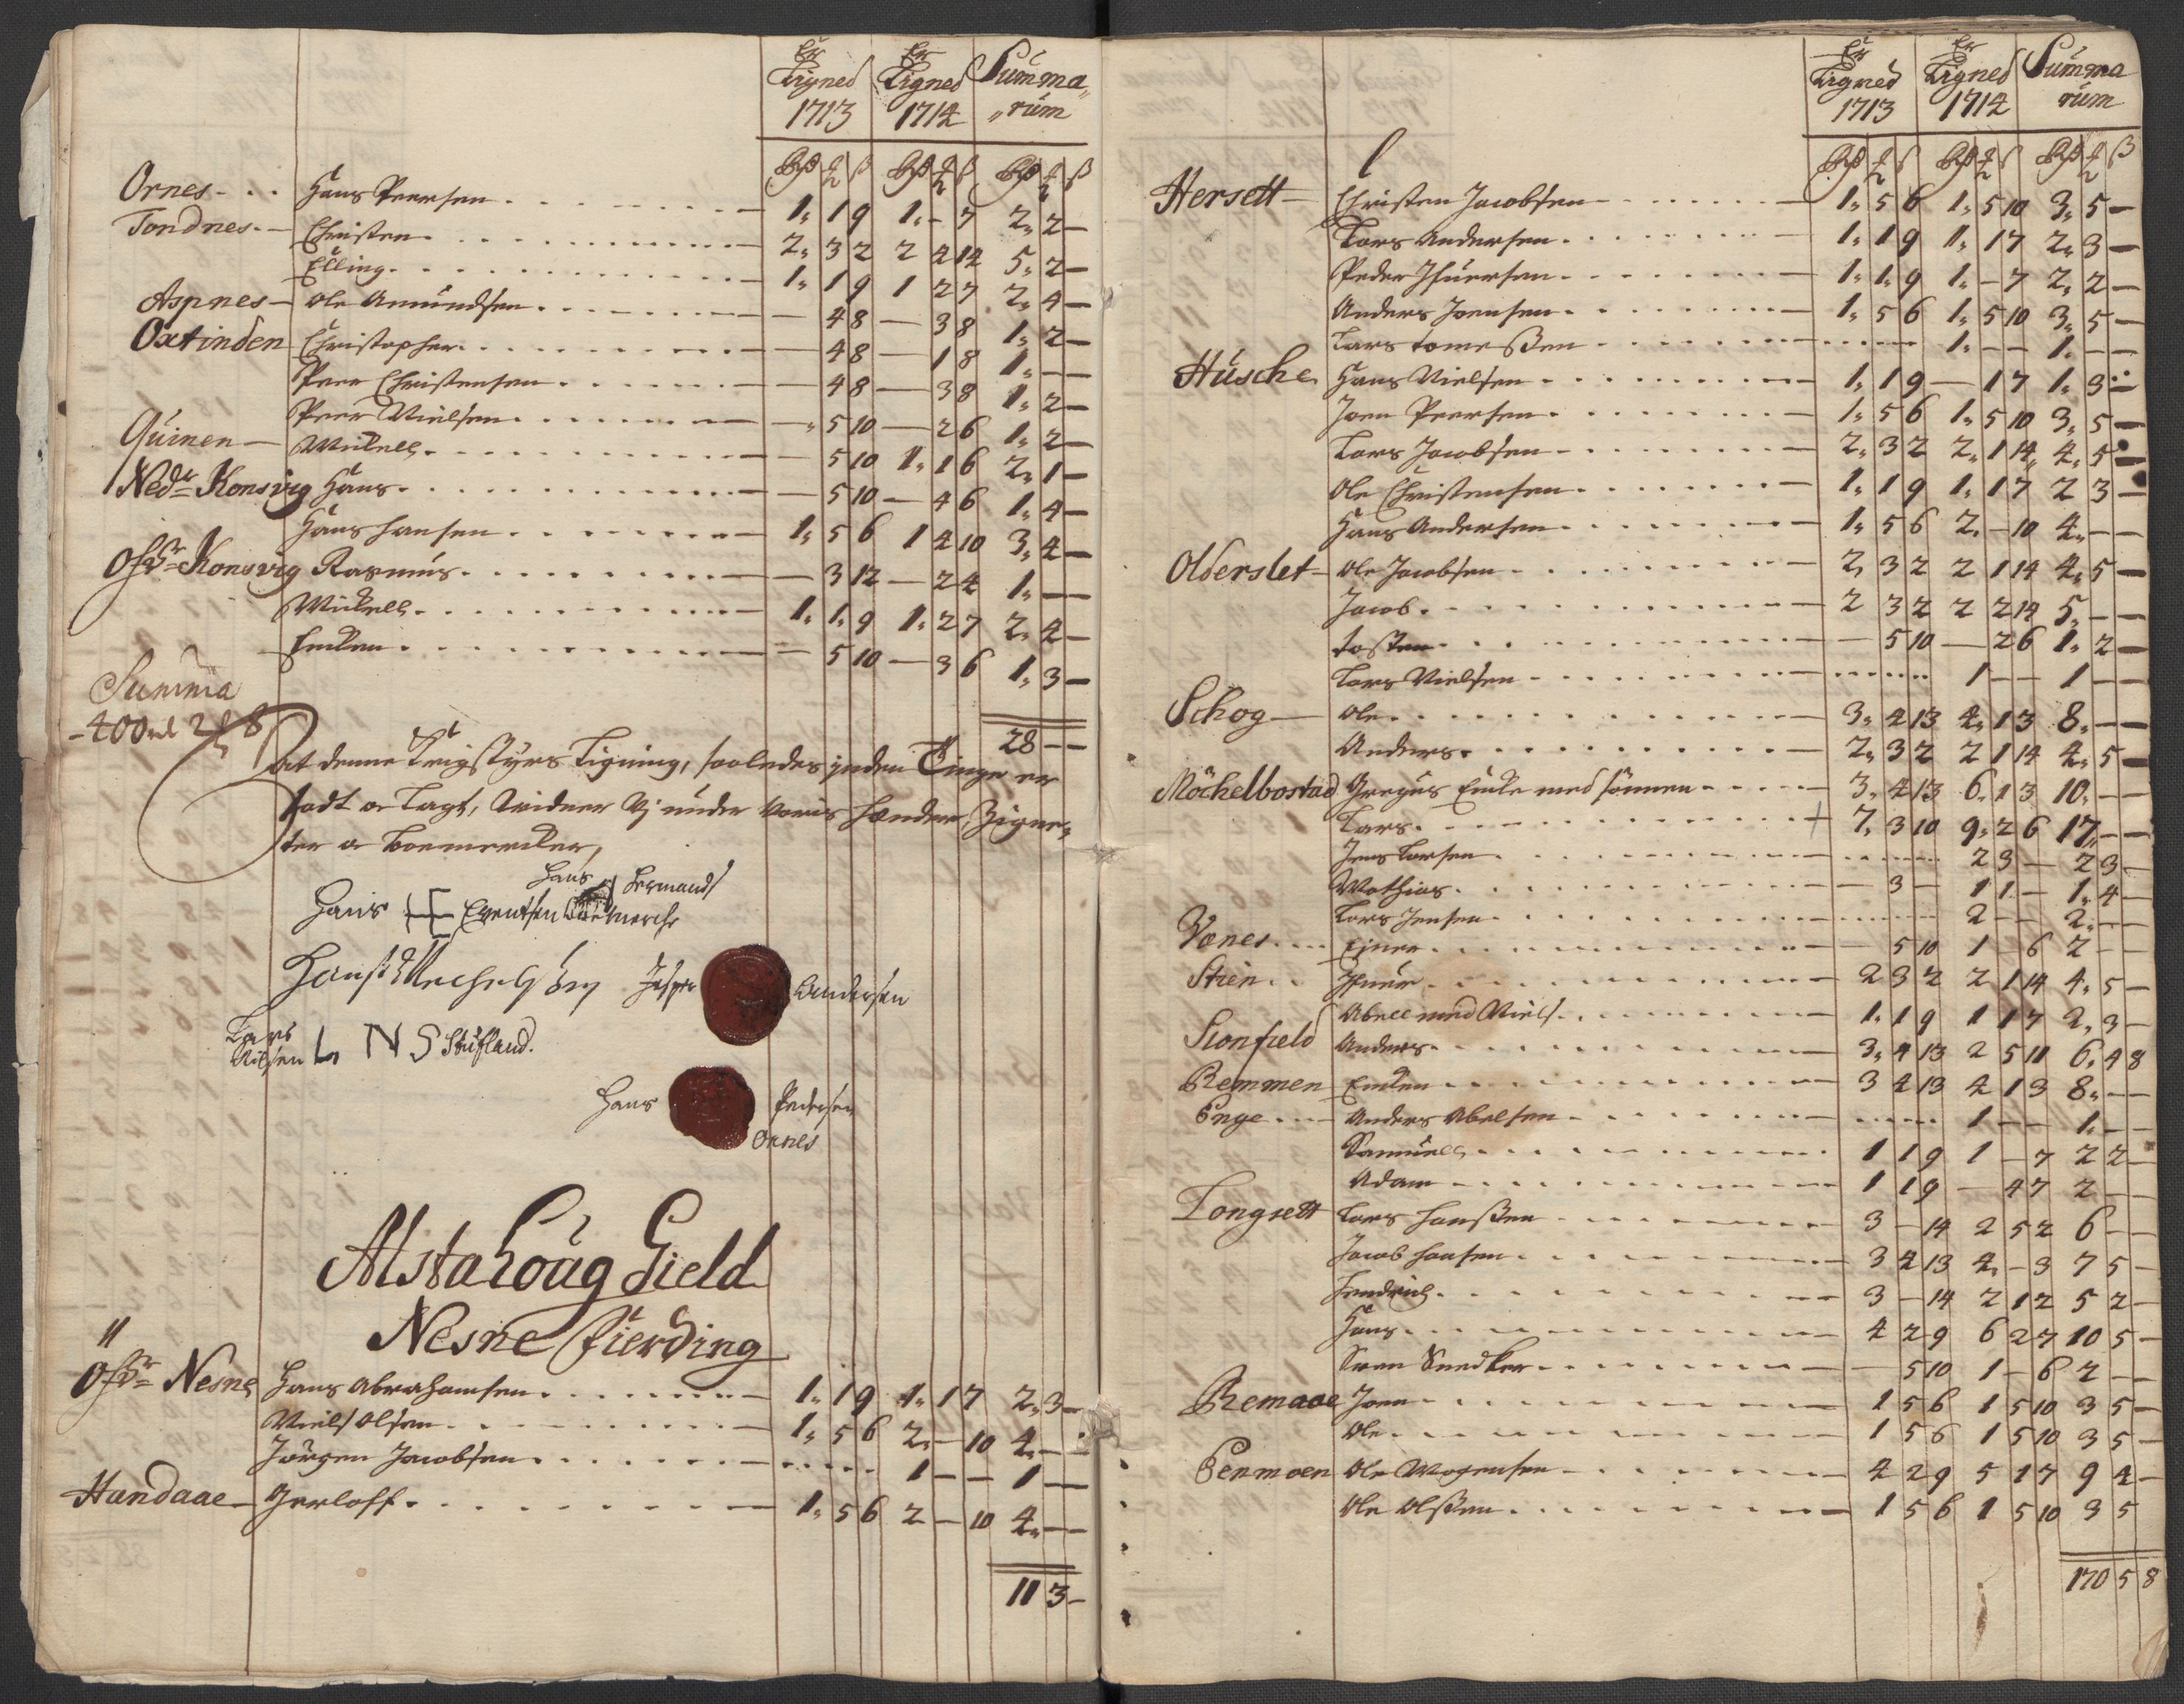 Er Er
Ligned Ligned Summa„
1713 1714 „rum
Rdr ß Rdr ß Rdr ß
Ornes - . . Hans Peersen 1. 1 9 1. - 7 2. 2 -
Tondnes. - Christen 2. 3 2 2 2 14 5. 2 -
Elling 1. 1 9 1 2 7 2. 4 -
Aspnes - Ole Amundsen - 4 8 - 3 8 1. 2 -
Oxtinden Christopher - 4 8 - 1 8 1. - -
Peer Christensen - 4 8 - 3 8 1. 2 -
Peer Nielsen - 5 10 - 2 6 1. 2 -
Quinen - Michell - 5 10 1. 1 6 2. 1 -
Nedr Konsvig Hans - 5 10 - 4 6 1. 4 -
Hans Hansen 1. 5 6 1 4 10 3. 4 -
Ofr Konsvig Rasmus - 3 12 - 2 4 1. - -
Michell 1. 1. 9 1. 2 7 2. 4 -
Enken - 5 10 - 3 6 1. 3 -
28 - -
Summa
- 400 rd 2 8
At denne Krigstyrs Ligning, saaledes paa Tinge er
sadt og Lagt, Vidner Vj under Voris Hænder, Zigne„
ter og Boemercker,
Hans Hermands
Hans Evertsen
Hans Mechelsen Jesper Andersen
Lars Nilsen L N S Stufland.
Hans Pedersen
Ornes
Alstahoug Gield
Nesne Fierding
Ofr Nesne Hans Abrahamsen 1. 1 9 1. 1 7 2. 3 -
Niels Olsen 1. 5 6 2. - 10 4. - -
Jørgen Jacobsen 1 - - 1 - -
Handaae - Gerloff 1. 5 6 2 - 10 4. - -
11 3 -
Er Er
Ligned Ligned Summa
1713 1714 rum
Rdr ß Rdr ß Rdr ß
Hersett - Christen Jacobsen 1. 5 6 1. 5 10 3. 5 -
Lars Andersen 1. 1 9 1. 1 7 2. 3 -
Peder Ifuersen 1. 1. 9 1. - 7 2. 2 -
Anders Joensen 1. 5 6 1. 5 10 3. 5 -
Lars Tomeßen 1. - - 1. - -
Husche Hans Nielsen 1. 1 9 - 1 7 1. 3 -
Joen Peersen 1. 5 6 1. 5 10 3. 5 -
Lars Jacobsen 2. 3 2 2. 1 14 4. 5 -
Ole Christensen 1. 1 9 1. 1 7 2 3 -
Hans Andersen 1. 5 6 2. - 10 4. - -
Olderslet - Ole Jacobsen 2. 3 2 2 1 14 4. 5 -
Jacob 2 3 2 2 2 14 5. - -
Tosten - 5 10 - 2 6 1. 2 -
Lars Nielsen 1 - - 1 - -
Schog - Ole 3. 4 13 4. 1 3 8. - -
Anders 2. 3 2 2 1 14 4. 5 -
Möchelbostad Gregus Encke med sönnen 3. 4 13 6. 1 3 10. - -
Lars + 7. 3 10 9. 2 6 17. - -
Jens Larsen 2 3 - 2 3 -
Mathias - 3 - 1 1 - 1. 4 -
Lars Jensen 2 - - 2. - -
Vones Ejner - 5 10 1 - 6 2 - -
Stien . . Ifuer 2 3 2 2 1 14 4. 5 -
Abell med Niels 1. 1 9 1 1 7 2. 3 -
Slonfield Anders 3. 4 13 2 5 11 6. 4 8
Remmen Encken 3 4 13 4 1 3 8. - -
Enge Anders Abelsen 1 - - 1. - -
Samuell 1 1 9 1 - 7 2 2 -
Adam 1 1 9 - 4 7 2 - -
Longsett Lars Hanßen 3 - 14 2 5 2 6 - -
Jacob Hansen 3 4 13 4. - 3 7 5 -
Hendrich 3 - 14 2 1 2 5 2 -
Hans 4 2 9 6 2 7 10 5 -
Sven Snedker - 5 10 1 - 6 2 - -
Remaae Joen 1 5 6 1 5 10 3 5 -
Ole 1 5 6 1 5 10 3 5 -
Eenmoen Ole Mogensen 4 2 9 5 1 7 9 4 -
Ole Olßen 1 5 6 1 5 10 3 5
170 5 8